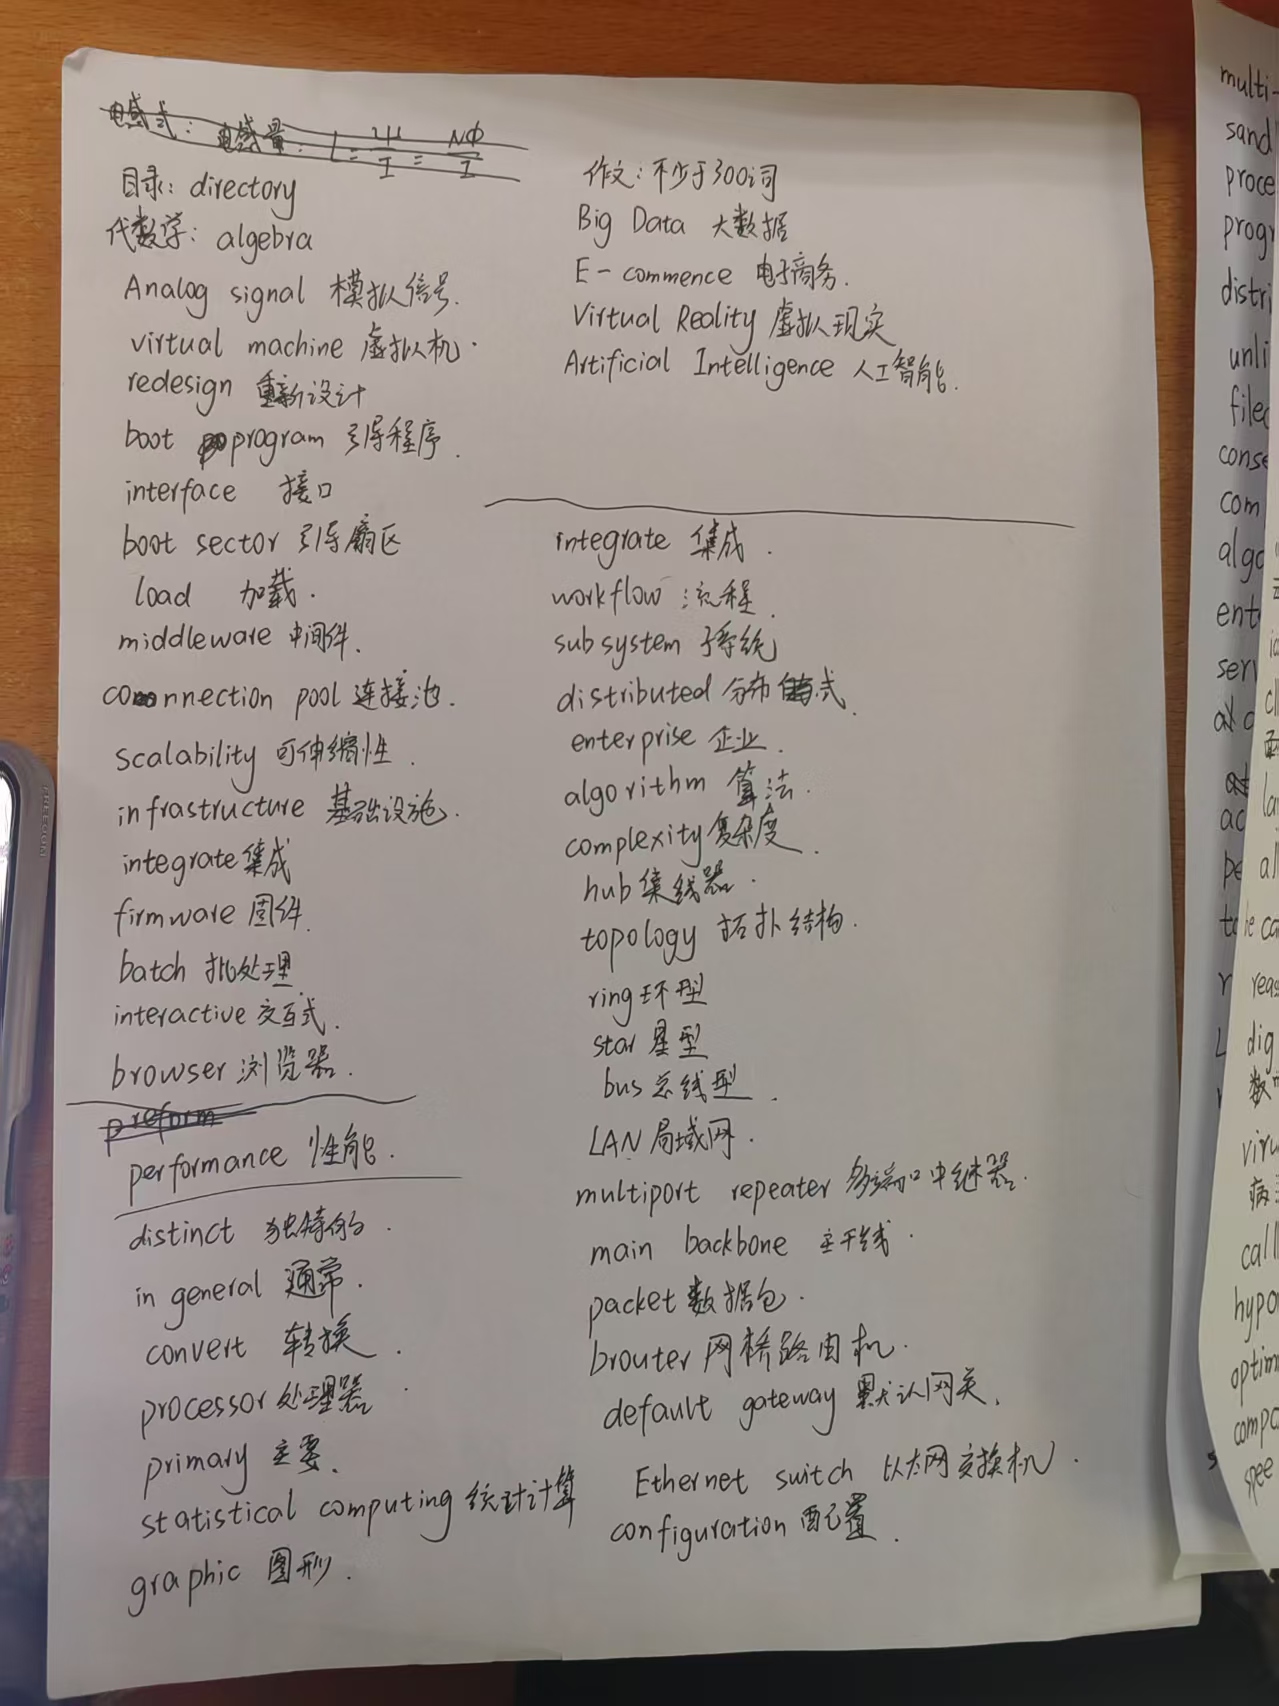 电感式：电感量：L=Ψ/I=NΦ/I
目录：directory
代数学：algebra
Analog signal 模拟信号.
virtual machine 虚拟机.
redesign 重新设计
boot program 引导程序.
interface 接口
boot sector 引导扇区
load 加载.
middleware 中间件.
connection pool 连接池.
scalability 可伸缩性.
infrastructure 基础设施.
integrate 集成
firmware 固件.
batch 批处理.
interactive 交互式.
browser 浏览器.
preform
performance 性能.
distinct 独特的.
in general 通常.
convert 转换.
processor 处理器.
primary 主要.
statistical computing 统计计算
graphic 图形.
作文：不少于300词
Big Data 大数据
E-commence 电子商务.
Virtual Reality 虚拟现实
Artificial Intelligence 人工智能.
integrate 集成.
workflow 流程.
subsystem 子系统
distributed 分布式.
enterprise 企业.
algorithm 算法.
complexity 复杂度.
hub 集线器.
topology 拓扑结构.
ring 环型
star 星型
bus 总线型.
LAN 局域网.
multiport repeater 多端口中继器.
main backbone 主干线.
packet 数据包.
brouter 网桥路由机.
default gateway 默认网关.
Ethernet switch 以太网交换机.
configuration 配置.
multi-
sand
proce
progr
distri
unli
file
conse
com
algo
ent
ser
ac
pe
to
he ca
reas
dig
数
viru
病
call
hypo
optim
compa
spee